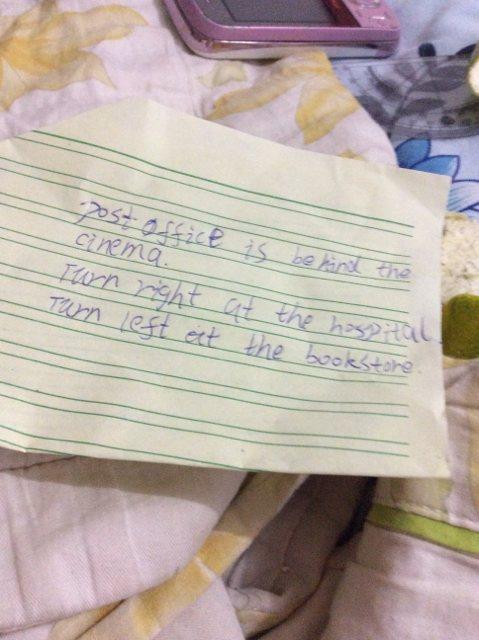 post office is behind the
cinema.
Turn right at the hospital.
Turn left at the bookstore.